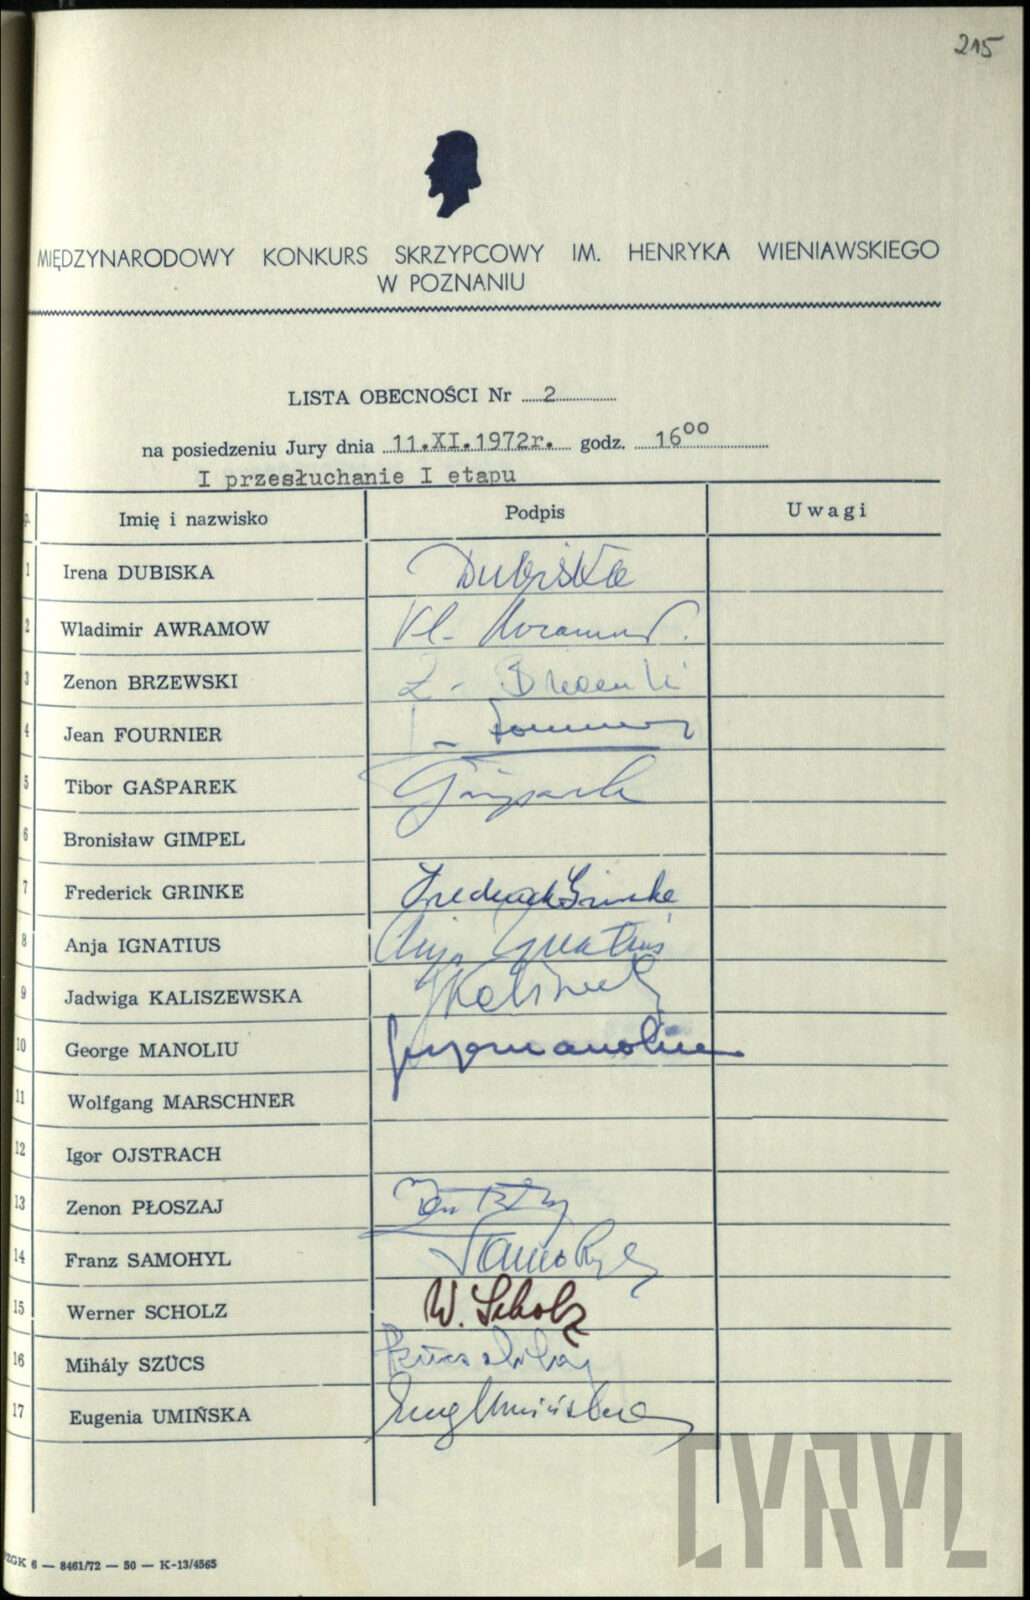 215
MIĘDZYNARODOWY KONKURS SKRZYPCOWY IM. HENRYKA WIENIAWSKIEGO
W POZNANIU
LISTA OBECNOŚCI Nr 2
na posiedzeniu Jury dnia 11.XI.1972r. godz. 16⁰⁰
I przesłuchanie I etapu
Imię i nazwisko Podpis Uwagi
1 Irena DUBISKA Dubiska
2 Wladimir AWRAMOW Vl. Avramov.
3 Zenon BRZEWSKI Z. Brzewski
4 Jean FOURNIER
5 Tibor GAŠPAREK Gašparek
6 Bronisław GIMPEL
7 Frederick GRINKE Frederick Grinke
8 Anja IGNATIUS Anja Ignatius
9 Jadwiga KALISZEWSKA
10 George MANOLIU
11 Wolfgang MARSCHNER
12 Igor OJSTRACH
13 Zenon PŁOSZAJ
14 Franz SAMOHYL Samohyl
15 Werner SCHOLZ W. Scholz
16 Mihály SZÜCS Szücs Mihály
17 Eugenia UMIŃSKA Eug Umińska
ZGK 6 — 8461/72 — 50 — K-13/4565
CYRYL